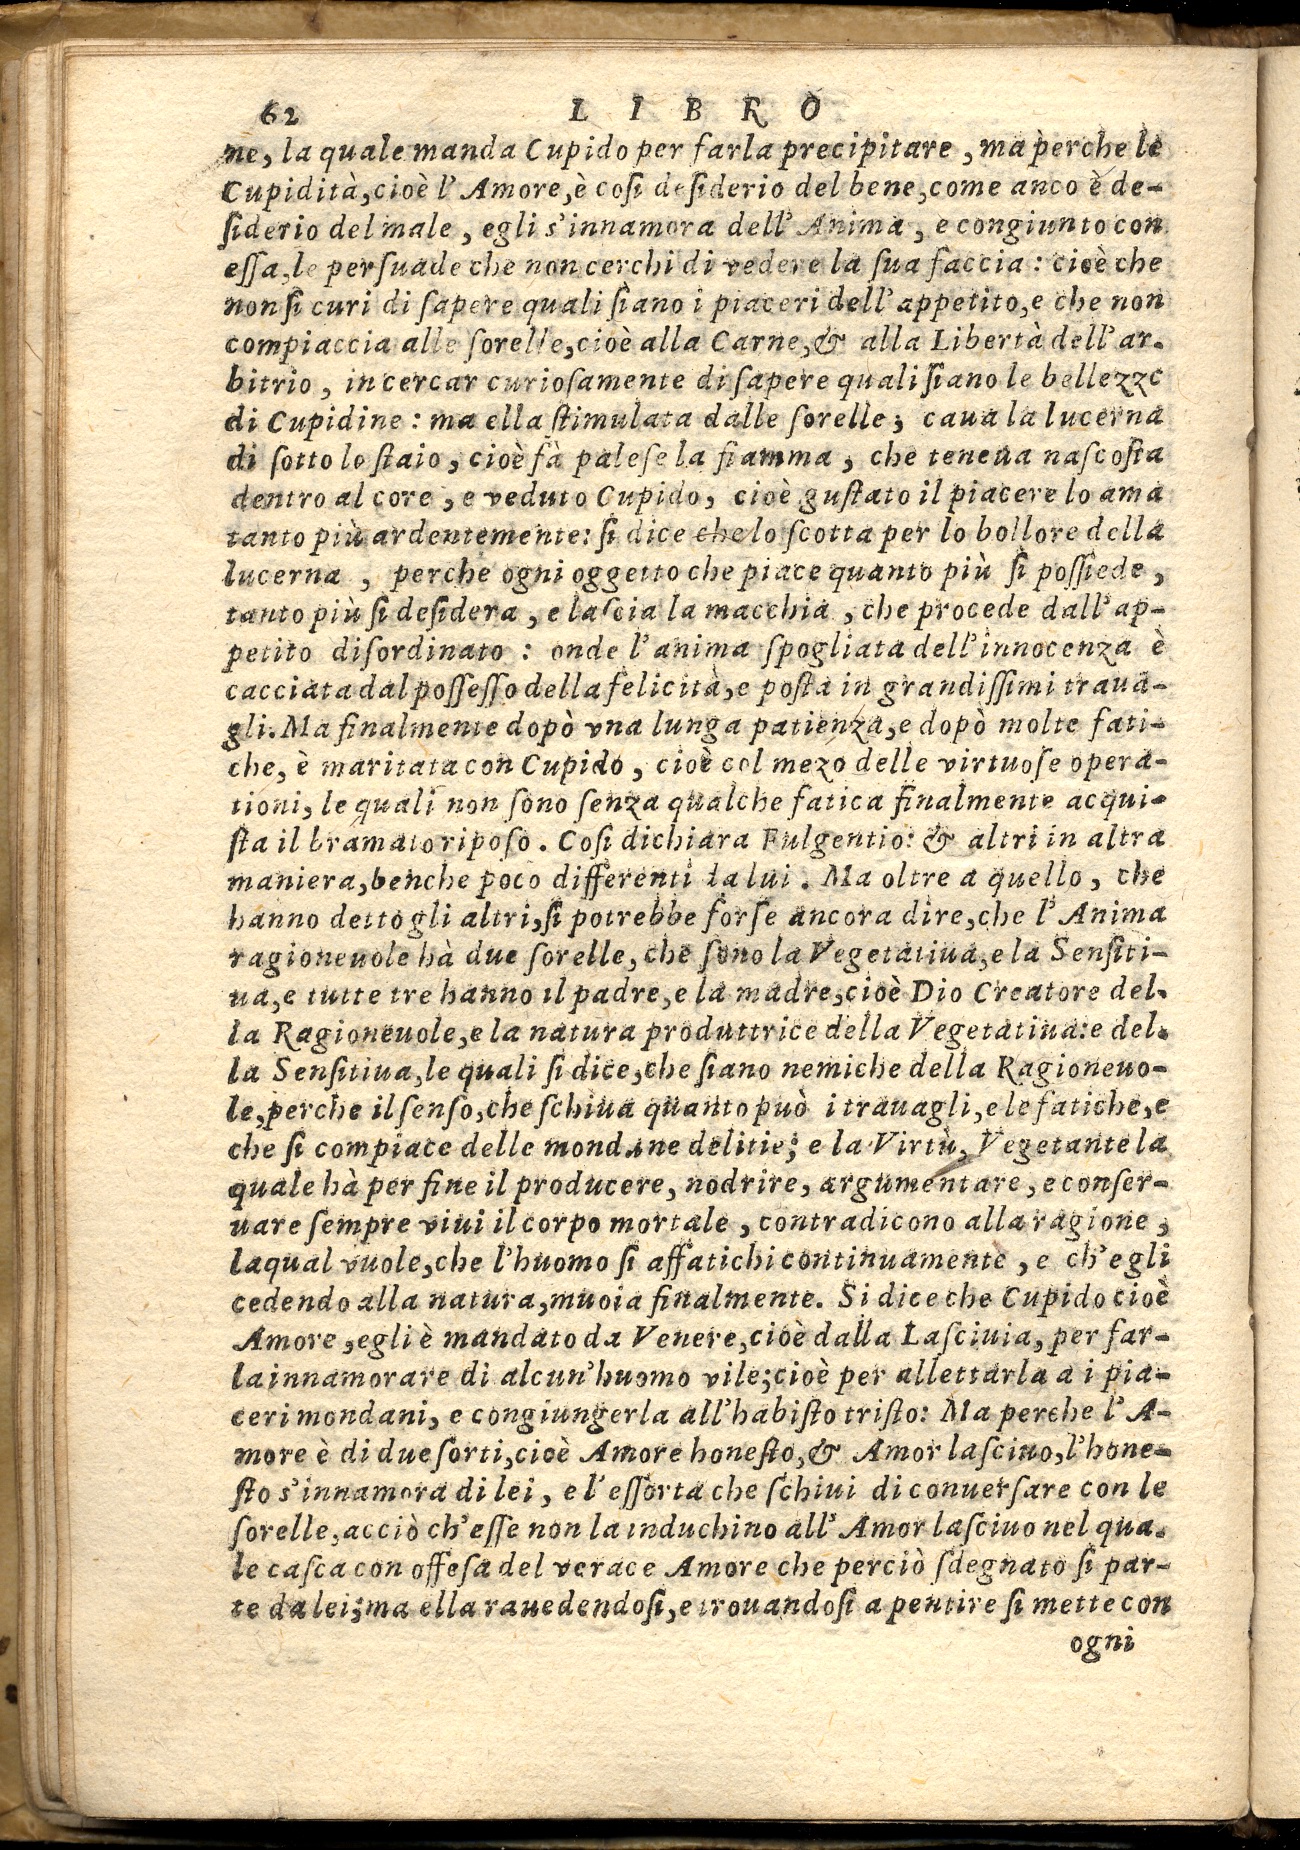 62 LIBRO
ne, la quale manda Cupido per farla precipitare, ma perche le
Cupidità, cioè l'Amore, è cosi desiderio del bene, come anco è de-
siderio del male, egli s'innamora dell'Anima, e congiunto con
essa, le persuade che non cerchi di vedere la sua faccia: cioè che
non si curi di sapere quali siano i piaceri dell'appetito, e che non
compiaccia alle sorelle, cioè alla Carne, & alla Libertà dell'ar-
bitrio, in cercar curiosamente di sapere quali siano le bellezze
di Cupidine: ma ella stimulata dalle sorelle; caua la lucerna
di sotto lo staio, cioè fà palese la fiamma, che teneua nascosta
dentro al core, e veduto Cupido, cioè gustato il piacere lo ama
tanto più ardentemente: si dice che lo scotta per lo bollore della
lucerna, perche ogni oggetto che piace quanto più si possiede,
tanto più si desidera, e lascia la macchia, che procede dall'ap-
petito disordinato: onde l'anima spogliata dell'innocenza è
cacciata dal possesso della felicità, e posta in grandissimi traua-
gli. Ma finalmente dopò vna lunga patienza, e dopò molte fati-
che, è maritata con Cupido, cioè col mezo delle virtuose opera-
tioni, le quali non sono senza qualche fatica finalmente acqui-
sta il bramato riposo. Cosi dichiara Fulgentio: & altri in altra
maniera, benche poco differenti da lui. Ma oltre a quello, che
hanno detto gli altri, si potrebbe forse ancora dire, che l'Anima
ragioneuole hà due sorelle, che sono la Vegetatiua, e la Sensiti-
ua, e tutte tre hanno il padre, e la madre, cioè Dio Creatore del-
la Ragioneuole, e la natura produttrice della Vegetatiua: e del-
la Sensitiua, le quali si dice, che siano nemiche della Ragioneuo-
le, perche il senso, che schiua quanto può i trauagli, e le fatiche, e
che si compiace delle mondane delitie; e la Virtù, Vegetante la
quale hà per fine il producere, nodrire, argumentare, e conser-
uare sempre viui il corpo mortale, contradicono alla ragione,
laqual vuole, che l'huomo si affatichi continuamente, e ch'egli
cedendo alla natura, muoia finalmente. Si dice che Cupido cioè
Amore, egli è mandato da Venere, cioè dalla Lasciuia, per far-
la innamorare di alcun'huomo vile; cioè per allettarla a i pia-
ceri mondani, e congiungerla all'habisto tristo: Ma perche l'A-
more è di due sorti, cioè Amore honesto, & Amor lasciuo, l'hone-
sto s'innamora di lei, e l'essorta che schiui di conuersare con le
sorelle, acciò ch'esse non la induchino all'Amor lasciuo nel qua-
le casca con offesa del verace Amore che perciò sdegnato si par-
te da lei; ma ella rauedendosi, e trouandosi a pentire si mette con
ogni